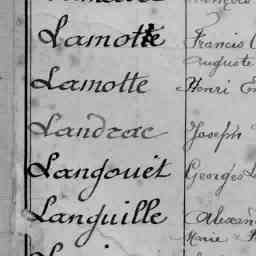 Lamotte Francis
Auguste
Lamotte Henri
Landrac Joseph
Langouët Georges
Languille Alexan
Marie